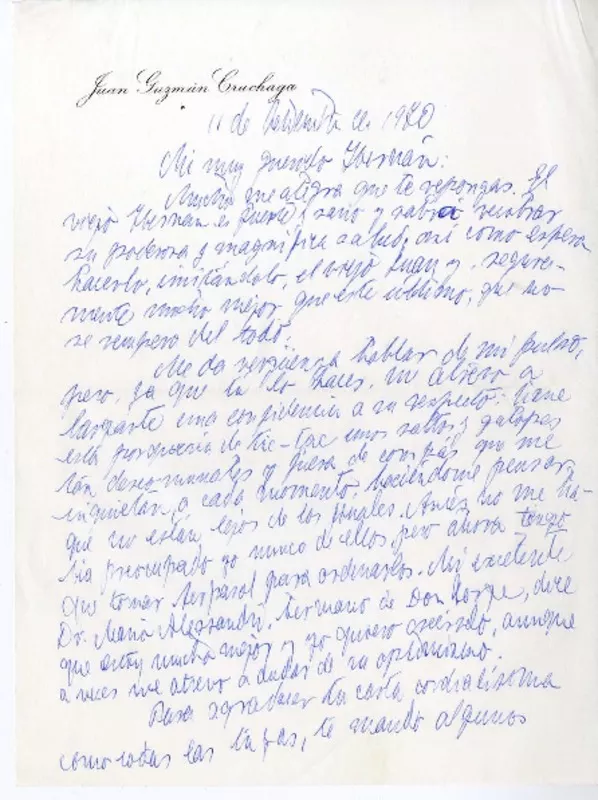 Juan Guzmán Cruchaga
11 de Setiembre de 1970
Mi muy querido Hernán:
Mucho me alegra que te repongas. El
viejo Hernán es fuerte, sano y sabrá mostrar
su poderosa y magnífica salud, así como espera
hacerlo, imitándolo, el viejo Juan y, segura-
mente mucho mejor que este último, que no
se recupera del todo.
Me da vergüenza hablar de mi pulso,
pero, ya que tú lo haces, me atrevo a
largarte una confidencia a su respecto: tiene
esta producción de tic-tac unos saltos y galopes
tan descomunales y fuera de compás que me
inquietan, a cada momento, haciéndome pensar
que no están lejos de los finales. Antes no me ha-
bía preocupado yo nunca de ellos, pero ahora tengo
que tomar para ordenarlos. Mi excelente
Dr. Mario Alessandri, hermano de Don Jorge, dice
que estoy mucho mejor y yo quiero creérselo, aunque
a veces me atrevo a dudar de su optimismo.
Para agradecer tu carta cordialísima
como todas las tuyas, te mando algunos